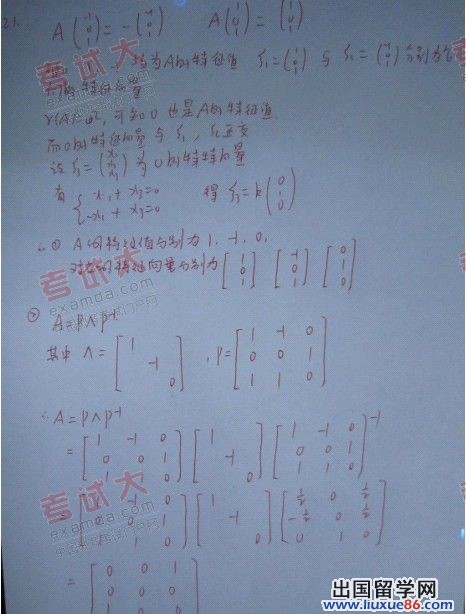 21. A(-1 0 1) = -(-1 0 1) A(1 0 1) = (1 0 1)
均为A的特征值 ξ₁=(1 0 1) 与 ξ₂=(-1 0 1) 分别为
的特征向量
r(A)=2, 可知0也是A的特征值.
而0的特征向量与ξ₁, ξ₂正交
设ξ₃=(x₁ x₂ x₃)为0的特特向量
有 { x₁+x₃=0
-x₁+x₃=0 得 ξ₃=k(0 1 0)
∴① A的特征值分别为 1, -1, 0,
对应的特征向量分别为 [1 0 1] [-1 0 1] [0 1 0]
② A=PΛP⁻¹
其中 Λ=[1 -1 0], P=[1 -1 0
0 0 1
1 1 0]
∴ A=PΛP⁻¹
=[1 -1 0
0 0 1
1 1 0][1 -1 0][1 -1 0
0 0 1
1 1 0]⁻¹
-1 0
0 0 1
1 1 0][1 -1 0][½ 0 ½
-½ 0 ½
0 1 0]
=[0 0 1
0 0 0
考试大
examda.com
考试大
examda.com
考试大
examda.com
出国留学网
www.liuxue86.com